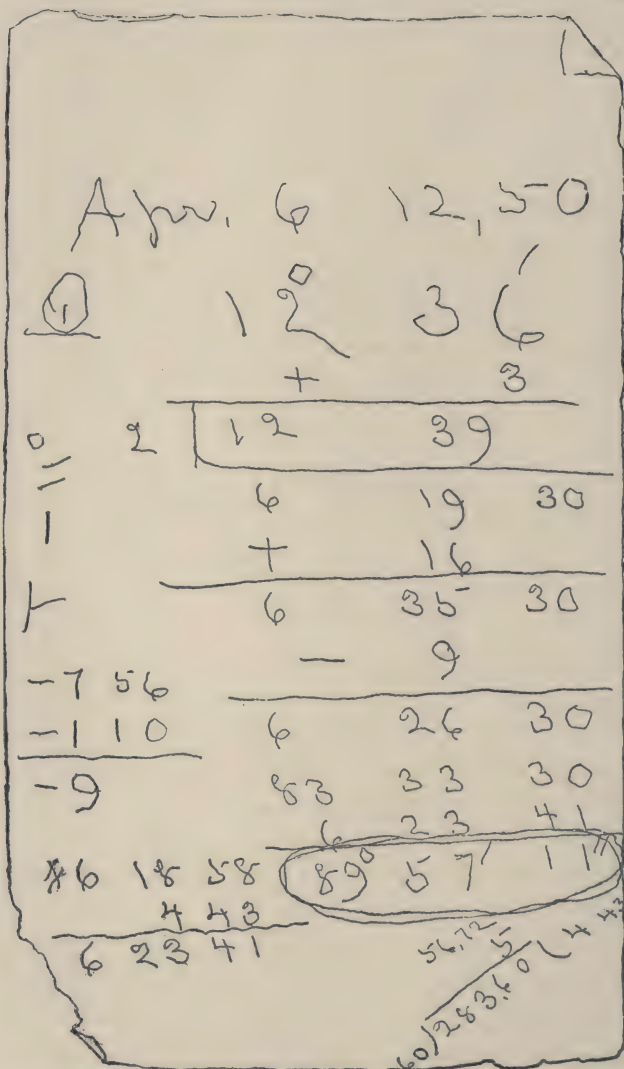 Apr. 6 12,50
12° 36′
+ 3
2 12 39
6 19 30
+ 16
6 35 30
— 9
-7 56
-1 10 6 26 30
-9 83 33 30
6 23 41
6 18 58 89° 57′ 11″
4 43
6 23 41
56,72
5
60)283,60(4 43
T - 11°